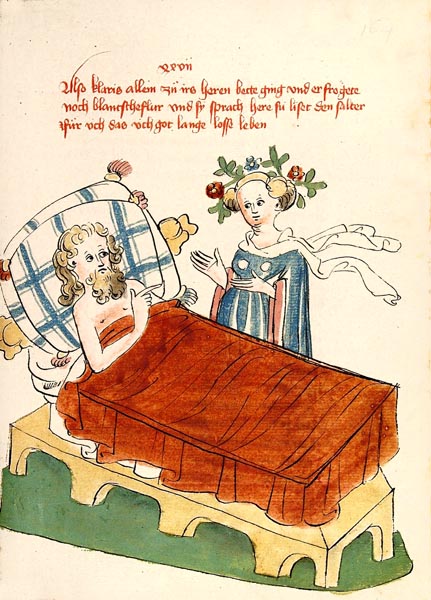 xxvii
Also klaris allein zů irs heren bette ging vnd er frogete
noch blantscheflur vnd sÿ sprach here su liset den salter
für vch das vch got lange losse leben